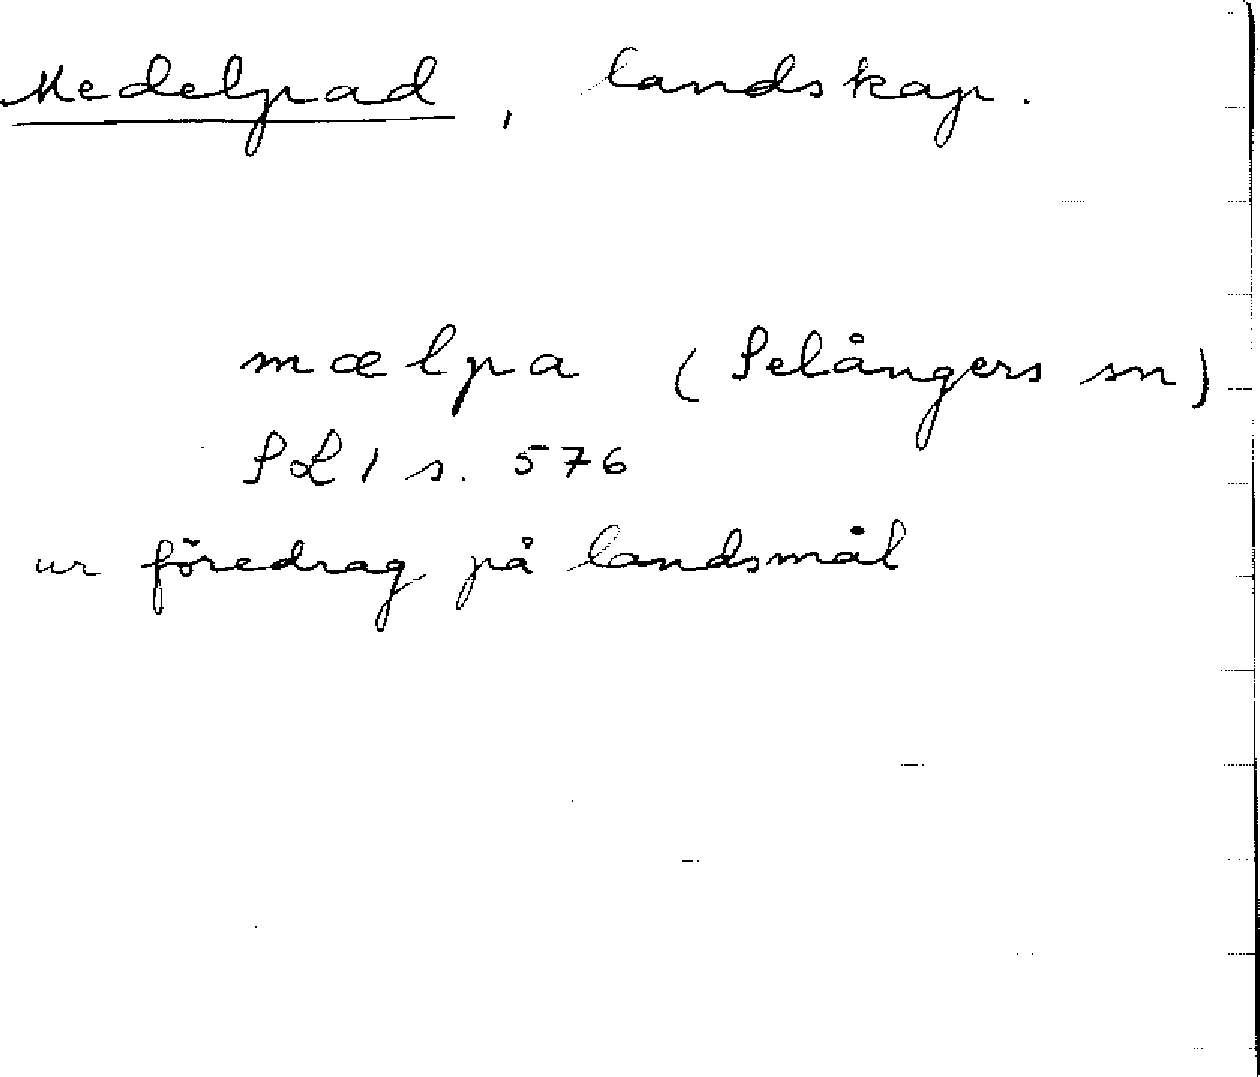 Medelpad, landskap.
mælpa (Selångers sn)
SL 1 s. 576
ur föredrag på landsmål